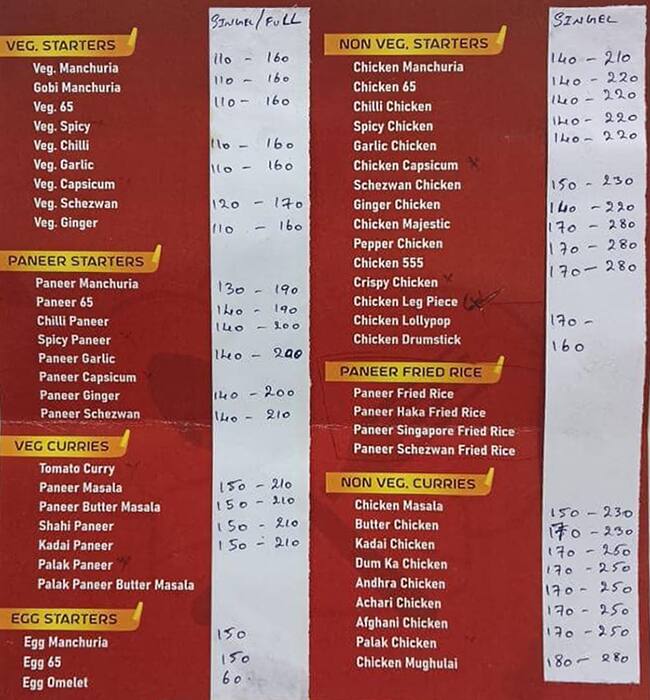 SINGEL/FULL
VEG. STARTERS
Veg. Manchuria 110 - 160
Gobi Manchuria 110 - 160
Veg. 65 110 - 160
Veg. Spicy
Veg. Chilli 110 - 160
Veg. Garlic 110 - 160
Veg. Capsicum
Veg. Schezwan 120 - 170
Veg. Ginger 110 - 160
PANEER STARTERS
Paneer Manchuria 130 - 190
Paneer 65 140 - 190
Chilli Paneer 140 - 200
Spicy Paneer
Paneer Garlic 140 - 200
Paneer Capsicum
Paneer Ginger 140 - 200
Paneer Schezwan 140 - 210
VEG CURRIES
Tomato Curry
Paneer Masala 150 - 210
Paneer Butter Masala 150 - 210
Shahi Paneer 150 - 210
Kadai Paneer 150 - 210
Palak Paneer
Palak Paneer Butter Masala
EGG STARTERS
Egg Manchuria 150
Egg 65 150
Egg Omelet 60
SINGEL
NON VEG. STARTERS
Chicken Manchuria 140 - 210
Chicken 65 140 - 220
Chilli Chicken 140 - 220
Spicy Chicken 140 - 220
Garlic Chicken 140 - 220
Chicken Capsicum
Schezwan Chicken 150 - 230
Ginger Chicken 140 - 220
Chicken Majestic 170 - 280
Pepper Chicken 170 - 280
Chicken 555 170 - 280
Crispy Chicken
Chicken Leg Piece
Chicken Lollypop 170 -
Chicken Drumstick 160
PANEER FRIED RICE
Paneer Fried Rice
Paneer Haka Fried Rice
Paneer Singapore Fried Rice
Paneer Schezwan Fried Rice
NON VEG. CURRIES
Chicken Masala 150 - 230
Butter Chicken 170 - 230
Kadai Chicken 170 - 250
Dum Ka Chicken 170 - 250
Andhra Chicken 170 - 250
Achari Chicken 170 - 250
Afghani Chicken 170 - 250
Palak Chicken
Chicken Mughulai 180 - 280